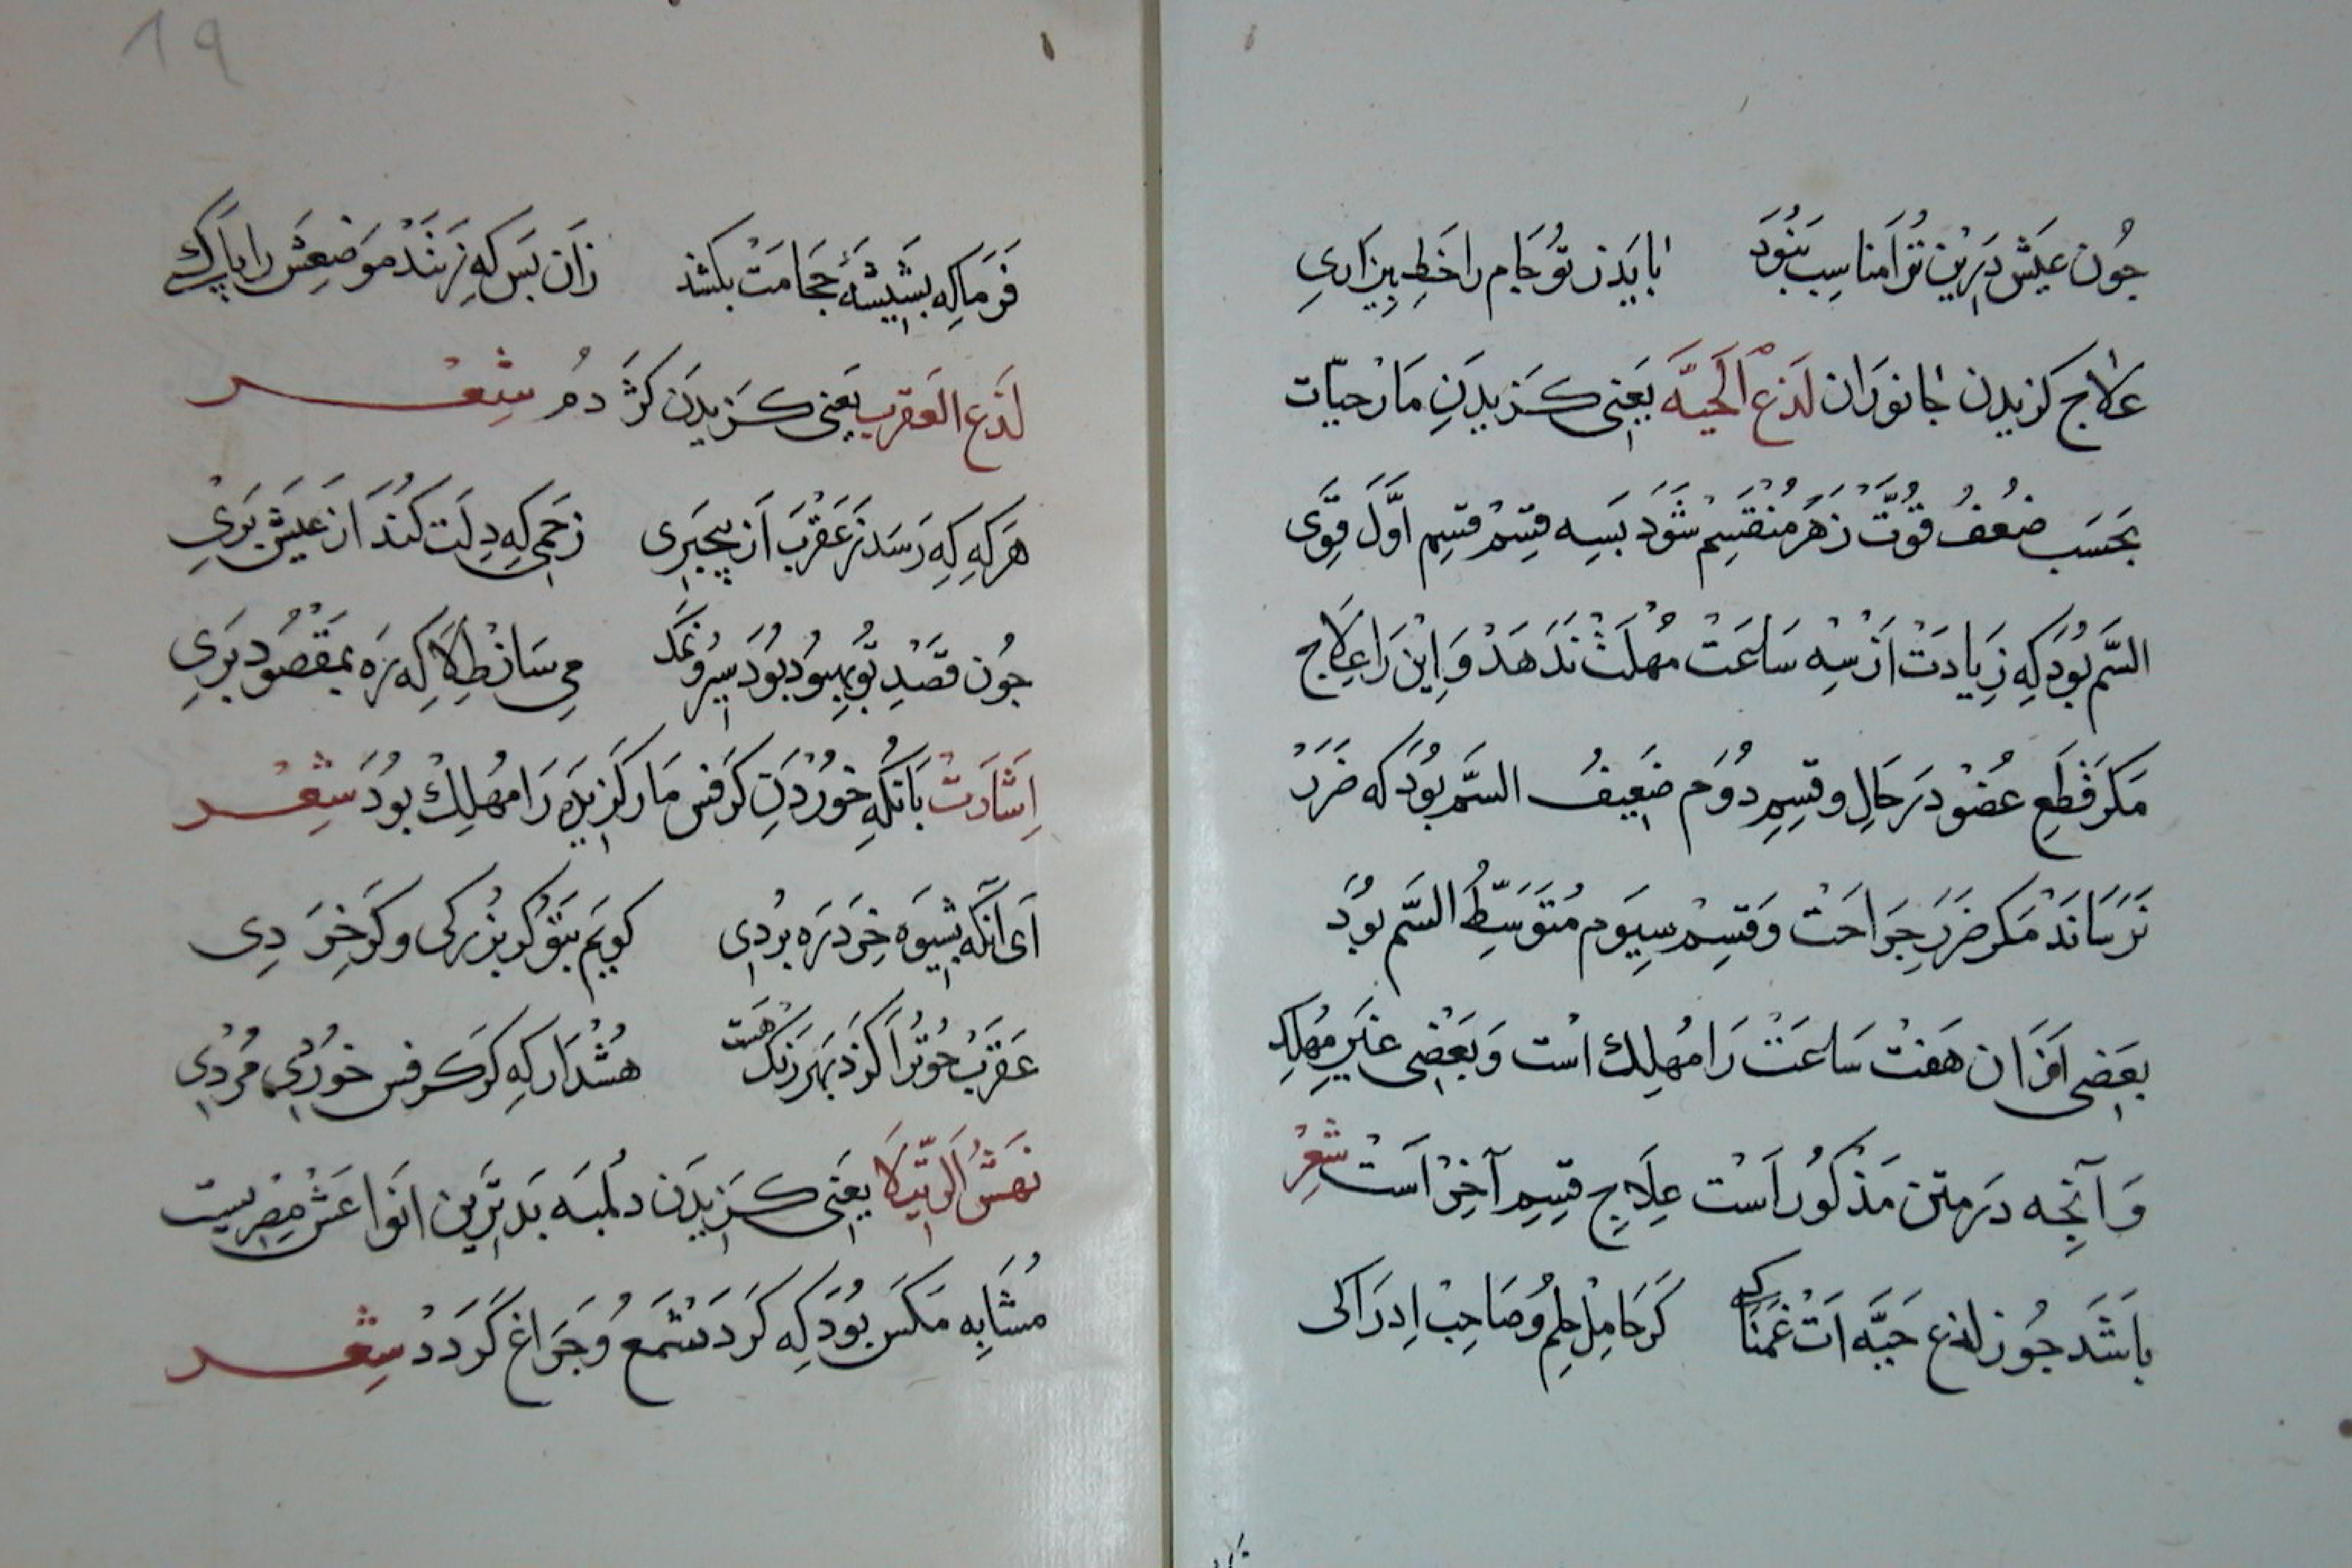 چون عیش درین ترا مناسب بنود باید ز تو جام را خط بیزاری
علاج کزیدن جانوران لَدْغ الحَیَّه یعنی کزیدن مار حیّات
بحسب ضعف قوّت زهر منقسم شود بسه قسم قسم اوّل قوّی
السَّم بود که زیادت از سه ساعت مهلت ندهد و این را علاج
مکر قطع عضو در حال و قسم دوم ضعیف السَّم بود که ضرر
نرساند مکر ضرر جراحت و قسم سیوم متوسّط السَّم بود
بعضی افران هفت ساعت را مهلک است و بعضی غیر مهلک
و آنچه در متن مذکور است علاج قسم آخر است شعر
باشد چو ز لدغ حیّه ات غمناکی کر حامل حلم و صاحب ادراکی
فرما که بشیشهٔ حجامت بکشند زان پس که زنند موضعش را پاکی
لدغ العقرب یعنی کزیدن کژدم شعر
هر که که رسد ز عقرب از بیخبری زخمی که دلت کند از عیش بری
چون قصد تو بهبود بود سیر و نمک می ساز طلا که ره بمقصود بری
اشارت بانکه خوردن کرفس مار کزیده را مهلک بود شعر
ای آنکه بشیوه خرد ره بردی کویم بتو کر بزرکی و کر خردی
عقرب چو ترا کزد بهر رنک که هست هشدار که کر کرفس خوردی مردی
نهش الرّتیلا یعنی کزیدن دلمبه بدترین انواعش مصریست
مشابه مکس بود که کرد شمع و چراغ کردد شعر
19